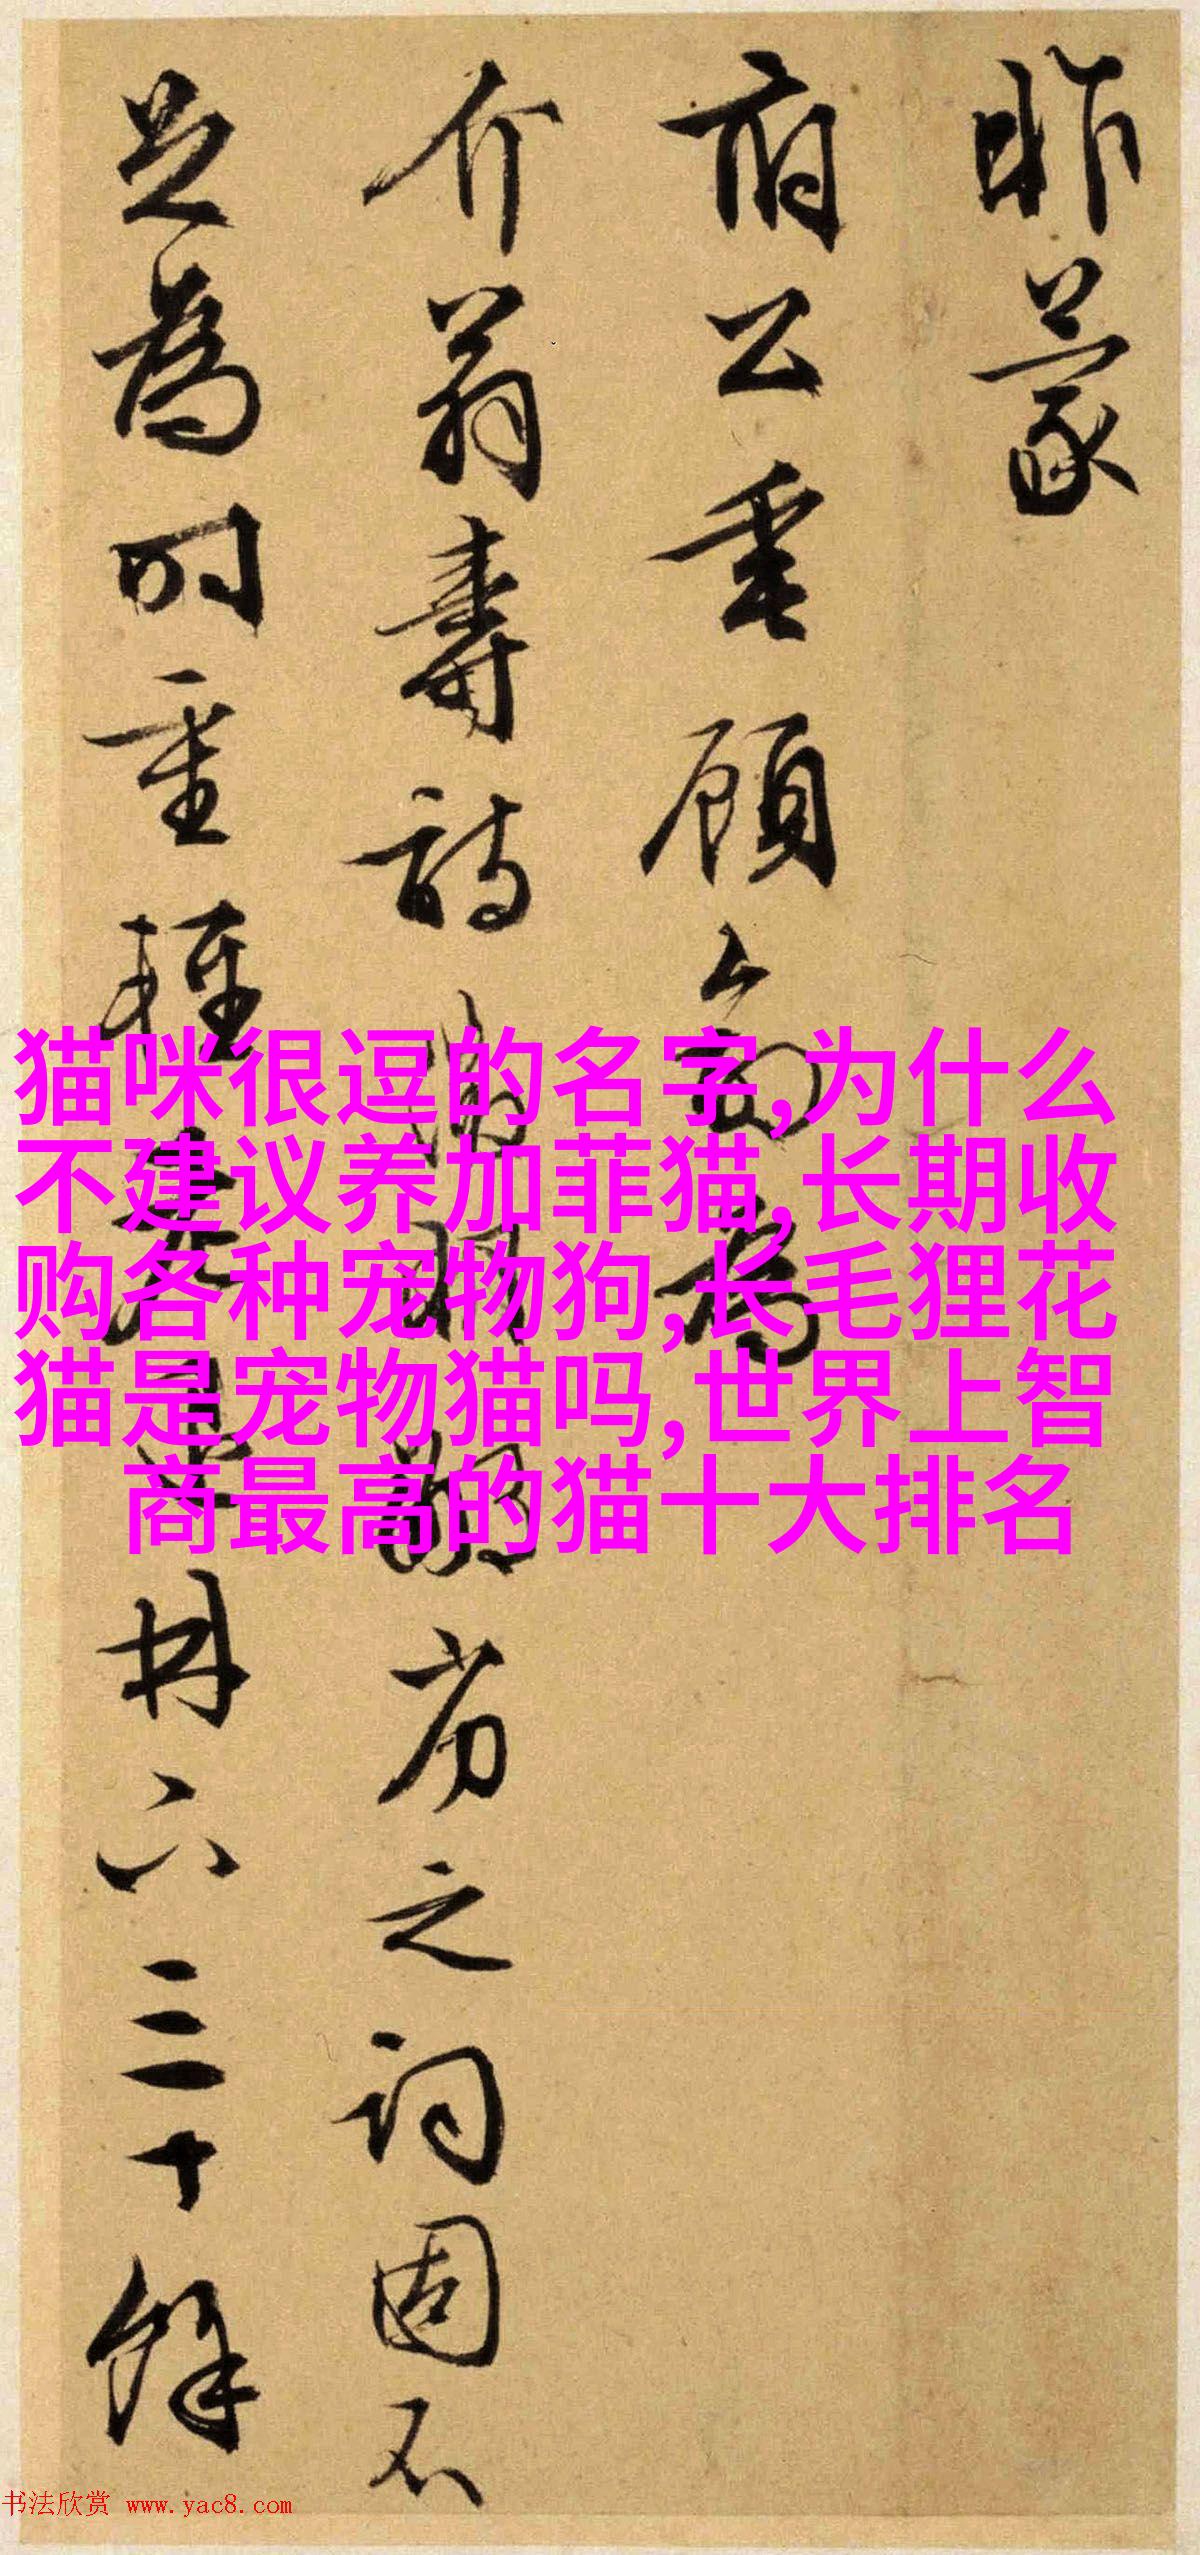 昨蒙
府公垂顾命为
介翁寿诗
之词固不
足为时重轻
册六三十馀
猫咪很逗的名字,为什么
不建议养加菲猫,长期收
购各种宠物狗,长毛狸花
猫是宠物猫吗,世界上智
商最高的猫十大排名
书法欣赏 www.yac8.com